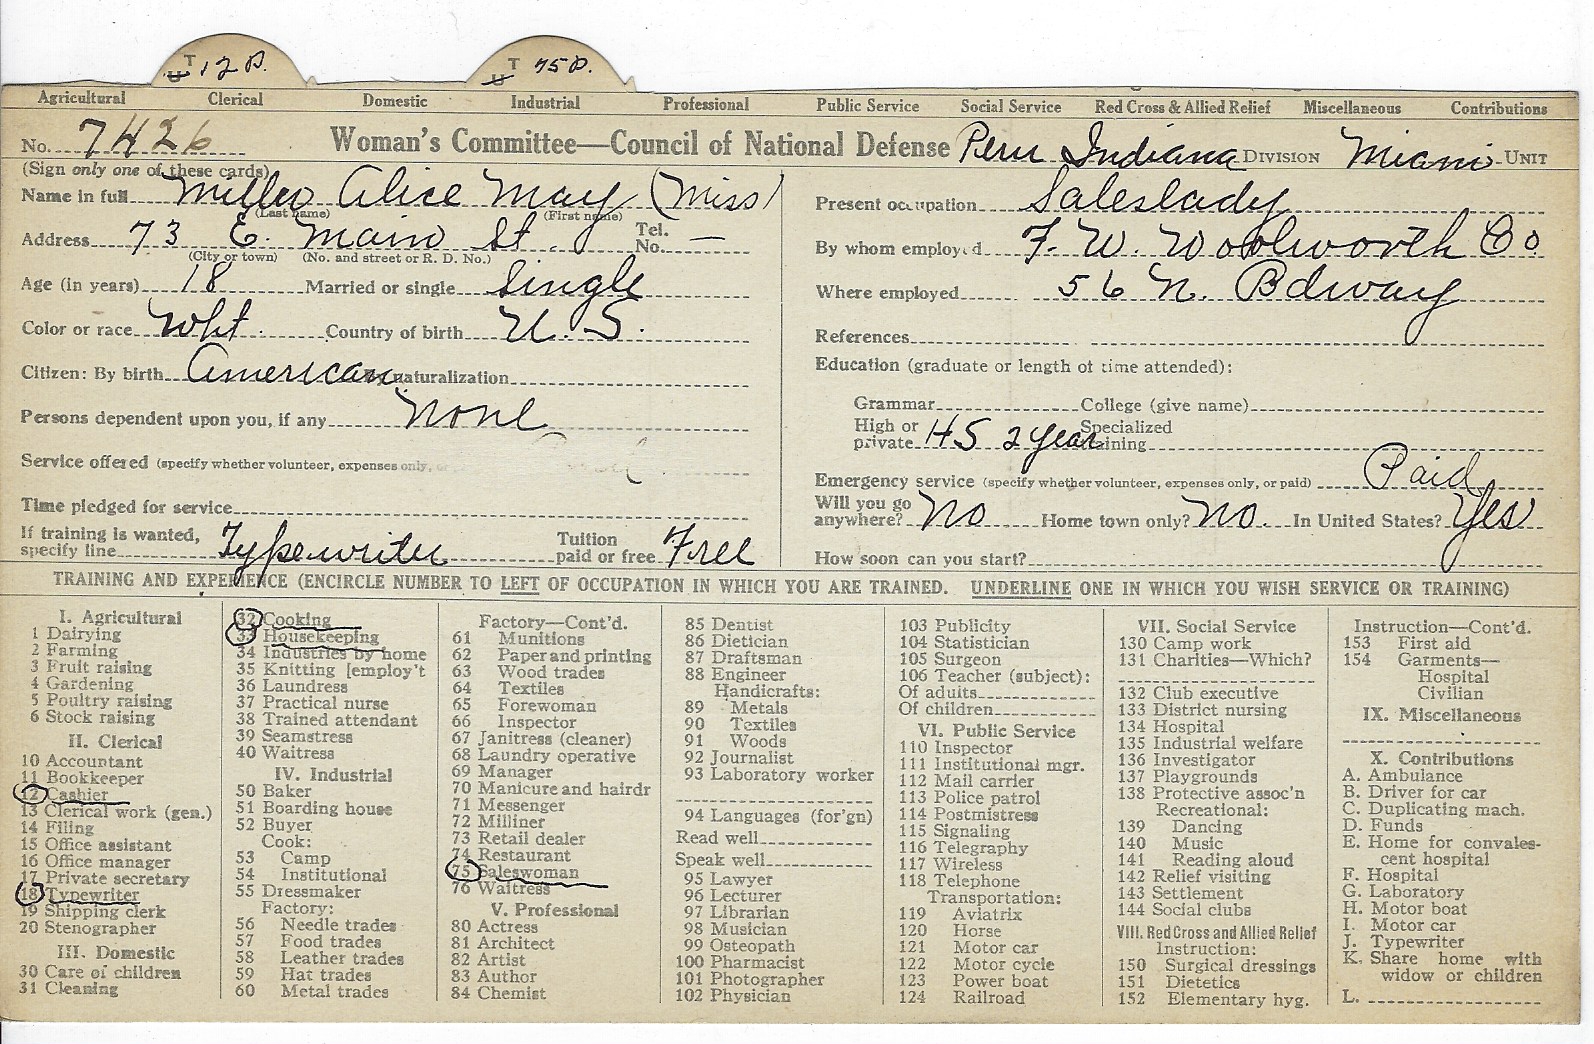 T 12 P.
T 75 P.
Agricultural Clerical Domestic Industrial Professional Public Service Social Service Red Cross & Allied Relief Miscellaneous Contributions
No. 7426 Woman's Committee—Council of National Defense Peru Indiana DIVISION Miami UNIT
(Sign only one of these cards)
Name in full Miller Alice May (Miss)
(Last name) (First name)
Address 73 E. Main St. Tel. No. —
(City or town) (No. and street or R. D. No.)
Age (in years) 18 Married or single Single
Color or race Wht. Country of birth U. S.
Citizen: By birth American By naturalization
Persons dependent upon you, if any None
Service offered (specify whether volunteer, expenses only, or
Time pledged for service
If training is wanted, specify line Typewriter Tuition paid or free Free
Present occupation Saleslady
By whom employed F. W. Woolworth Co
Where employed 56 N. Bdway
References
Education (graduate or length of time attended):
Grammar College (give name)
High or private HS 2 year Specialized training
Emergency service (specify whether volunteer, expenses only, or paid) Paid
Will you go anywhere? No Home town only? No. In United States? Yes
How soon can you start?
TRAINING AND EXPERIENCE (ENCIRCLE NUMBER TO LEFT OF OCCUPATION IN WHICH YOU ARE TRAINED. UNDERLINE ONE IN WHICH YOU WISH SERVICE OR TRAINING)
I. Agricultural
1 Dairying
2 Farming
3 Fruit raising
4 Gardening
5 Poultry raising
6 Stock raising
II. Clerical
10 Accountant
11 Bookkeeper
12 Cashier
13 Clerical work (gen.)
14 Filing
15 Office assistant
16 Office manager
17 Private secretary
18 Typewriter
19 Shipping clerk
20 Stenographer
III. Domestic
30 Care of children
31 Cleaning
32 Cooking
33 Housekeeping
34 Industries by home
35 Knitting [employ't
36 Laundress
37 Practical nurse
38 Trained attendant
39 Seamstress
40 Waitress
IV. Industrial
50 Baker
51 Boarding house
52 Buyer
Cook:
53 Camp
54 Institutional
55 Dressmaker
Factory:
56 Needle trades
57 Food trades
58 Leather trades
59 Hat trades
60 Metal trades
Factory—Cont'd.
61 Munitions
62 Paper and printing
63 Wood trades
64 Textiles
65 Forewoman
66 Inspector
67 Janitress (cleaner)
68 Laundry operative
69 Manager
70 Manicure and hairdr
71 Messenger
72 Milliner
73 Retail dealer
74 Restaurant
75 Saleswoman
76 Waitress
V. Professional
80 Actress
81 Architect
82 Artist
83 Author
84 Chemist
85 Dentist
86 Dietician
87 Draftsman
88 Engineer
Handicrafts:
89 Metals
90 Textiles
91 Woods
92 Journalist
93 Laboratory worker
94 Languages (for'gn)
Read well
Speak well
95 Lawyer
96 Lecturer
97 Librarian
98 Musician
99 Osteopath
100 Pharmacist
101 Photographer
102 Physician
103 Publicity
104 Statistician
105 Surgeon
106 Teacher (subject):
Of adults
Of children
VI. Public Service
110 Inspector
111 Institutional mgr.
112 Mail carrier
113 Police patrol
114 Postmistress
115 Signaling
116 Telegraphy
117 Wireless
118 Telephone
Transportation:
119 Aviatrix
120 Horse
121 Motor car
122 Motor cycle
123 Power boat
124 Railroad
VII. Social Service
130 Camp work
131 Charities—Which?
132 Club executive
133 District nursing
134 Hospital
135 Industrial welfare
136 Investigator
137 Playgrounds
138 Protective assoc'n
Recreational:
139 Dancing
140 Music
141 Reading aloud
142 Relief visiting
143 Settlement
144 Social clubs
VIII. Red Cross and Allied Relief
Instruction:
150 Surgical dressings
151 Dietetics
152 Elementary hyg.
Instruction—Cont'd.
153 First aid
154 Garments—
Hospital
Civilian
IX. Miscellaneous
X. Contributions
A. Ambulance
B. Driver for car
C. Duplicating mach.
D. Funds
E. Home for convales-
cent hospital
F. Hospital
G. Laboratory
H. Motor boat
I. Motor car
J. Typewriter
K. Share home with
widow or children
L.